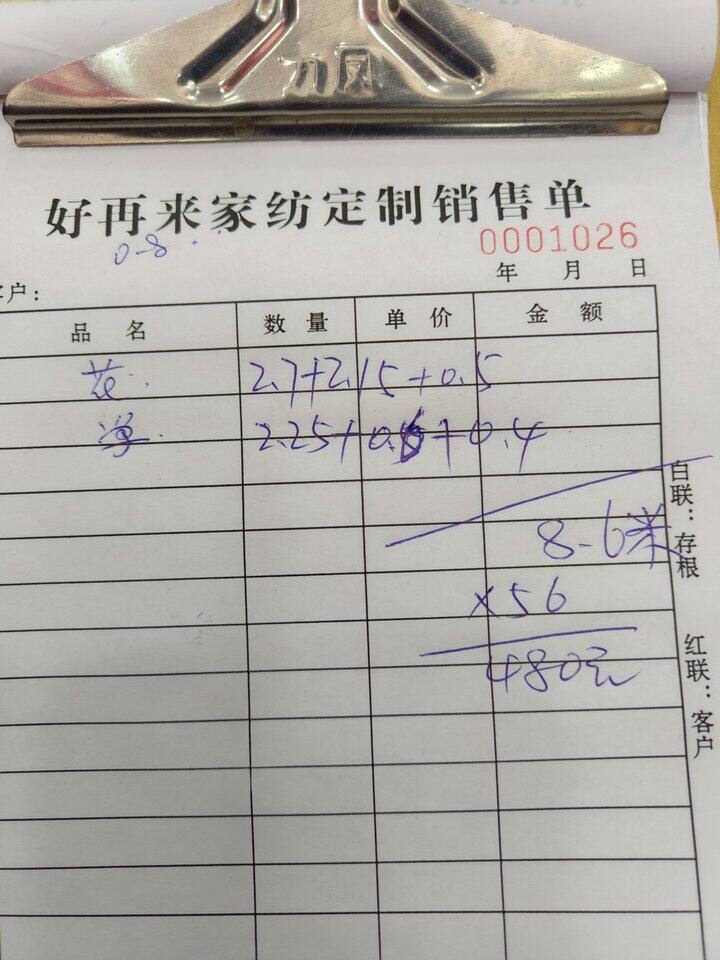 力风
好再来家纺定制销售单
0001026
0-8
年 月 日
客户：
品名 数量 单价 金额
花 2.7+2.15+0.5
2.25+0.6+0.4
8.6米
×56
480元
白联：存根
红联：客户